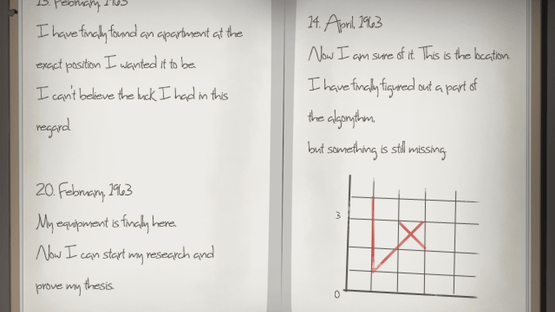 13. February, 1963
I have finally found an apartment at the
exact position I wanted it to be.
I can't believe the luck I had in this
regard.
20. February, 1963
My equipment is finally here.
Now I can start my research and
prove my thesis.
14. April, 1963
Now I am sure of it. This is the location.
I have finally figured out a part of
the algorythm.
but something is still missing.
3
0